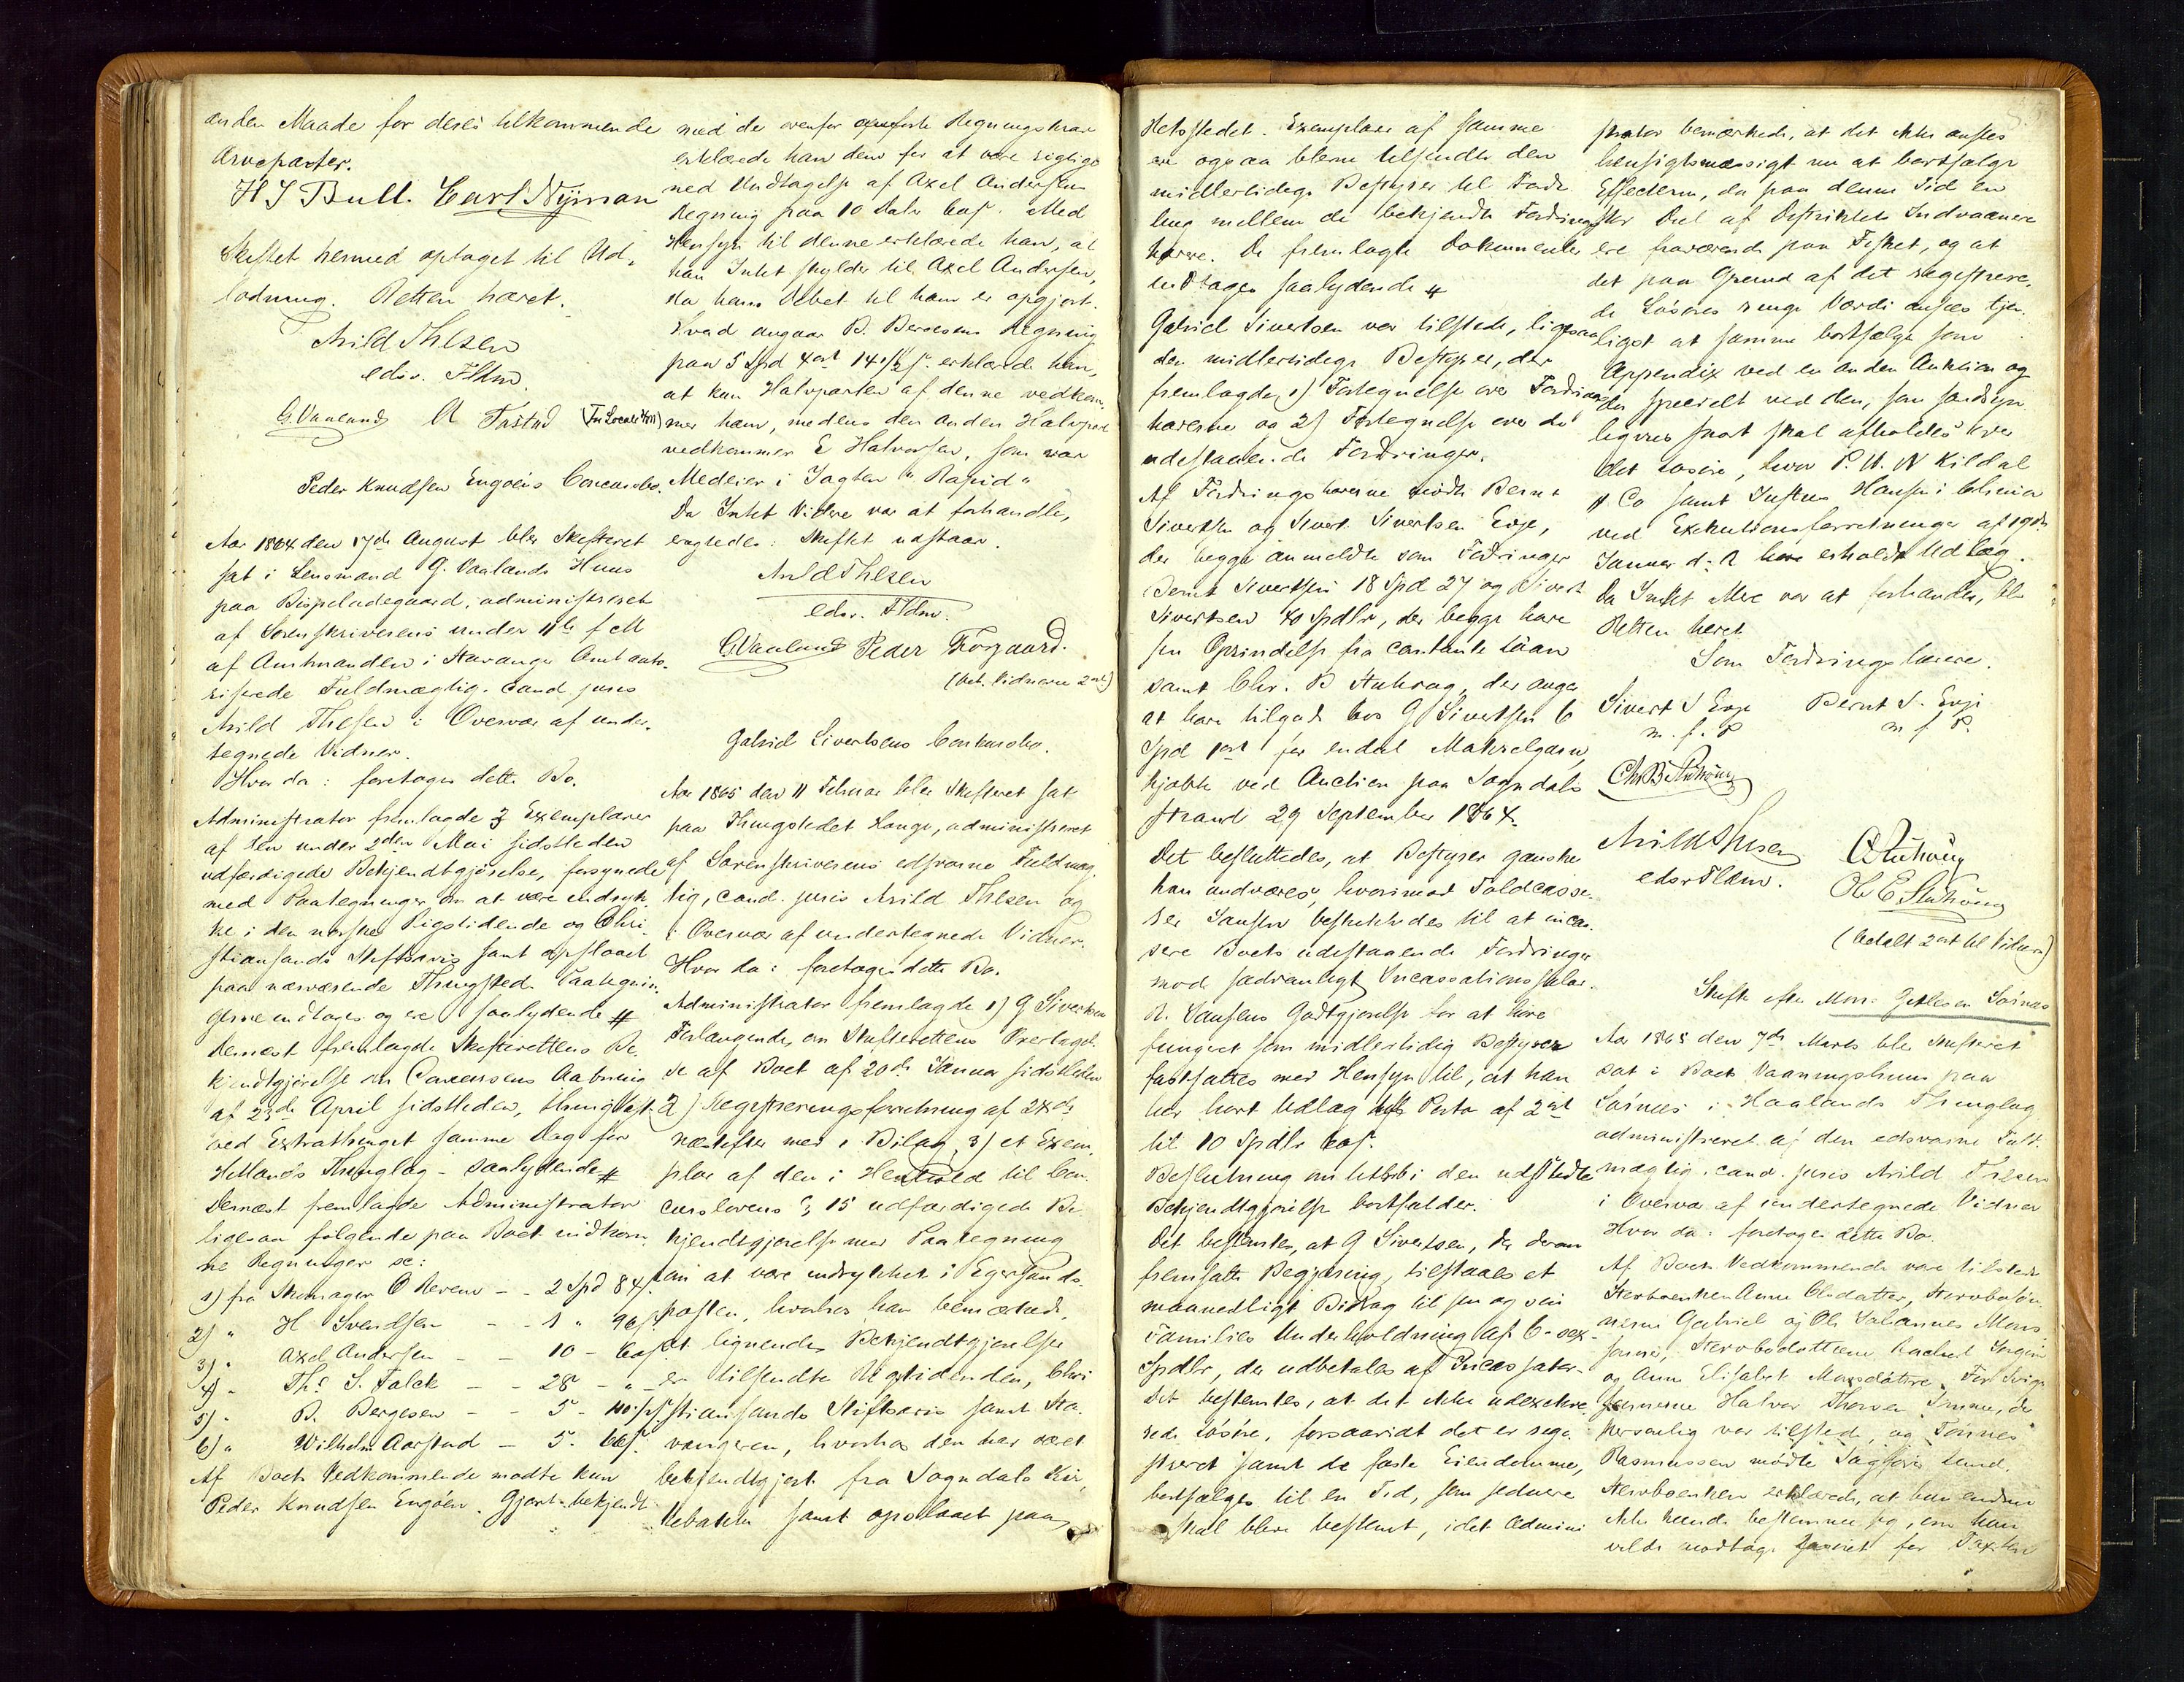 anden Maade for deres tilkommende
Arveparter.
H J Bull. Carl Nyman
Skiftet hermed optaget til Ud,
lodning. Retten hævet.
Arild Thesen
edsv. Fldm.
G. Vaaland A Tastad
Peder Knudsen Engøens Concursbo.
Aar 1864 den 17de August blev Skifteret
sat i Lensmand G. Vaalands Huus
paa Bispeladegaard, administreret
af Sorenskriverens under 11te f M
af Amtmanden i Stavanger Amt auto-
riserede Fuldmægtig, cand. juris
Arild Thesen i Overvær af under-
tegnede Vidner.
Hvor da: foretoges dette Bo.
Administrator fremlagde 3 Exemplarer
af den under 2den Mai sidstleden
udfærdigede Bekjendtgjørelse, forsynede
med Paategninger om at være indryk-
ket i den norske Rigstidende og Chri-
stiansands Stiftsavis samt opslaaet
paa nærværende Thingsted. Paategnin-
gerne indtages og ere saalydende #
Dernæst fremlagde Skifterettens Be-
kjendtgjørelse om Concursens Aabning
af 23de April sidstleden, thinglæst
ved Extrathinget samme Dag for
Hetlands Thinglag - saalydende #
Dernæst fremlagde Administrator
ligesaa følgende paa Boet indkom-
ne Regninger se:
1) fra Skomager O Reven - - 2 Spd 84 s.
2) " H Svendsen - - 1 " 96 s.
3) " Axel Andersen - - 10 -
4) " Ths. S. Falck - - 28 - " -
5) " B. Bergesen - - 5 -
6) " Wilhelm Aarstad - 5.
Af Boets Vedkommende mødte kun
Peder Knudsen Engøen. Gjort bekjendt
med de ovenfor anførte Regningskrav
erklærede han dem for at være rigtige
med Undtagelse af Axel Andersens
Regning paa 10 Dalr Med
Hensyn til denne erklærede han, at
han Intet skylder til Axel Andersen,
da hans Debet til ham er opgjort.
Hvad angaar B. Bergesens Regning
paa 5 Spd 4 ort 14 1/2 s. erklærede han,
at kun Halvparten af denne vedkom-
mer ham, medens den anden Halvpart
vedkommer E Halvorsen, som var
Medeier i Jagten "Rapid"
Da Intet Videre var at forhandle,
eragtedes: Skiftet udstaar.
Arild Thesen
edsv. Fldm.
G. Vaaland Peder Forgaard.
(bet. Vidnerne 2 ort)
Gabriel Sivertsens Concursbo.
Aar 1865 den 11 Februar blev Skifteret sat
paa Thingstedet Hauge, administreret
af Sorenskriverens edsvorne Fuldmæg-
tig, cand. juris Arild Thesen og
i Overvær af undertegnede Vidner.
Hvor da: foretoges dette Bo.
Administrator fremlagde 1) G Sivertsens
Forlangende om Skifterettens Overtagel-
se af Boet af 20de Januar sidstleden
2) Registreringsforretning af 24de
næstefter med 1 Bilag, 3) et Exem,
plar af den i Henhold til Con-
curslovens § 15 udfærdigede Be-
kjendtgjørelse med Paategning
om at være indrykket i Egersunds-
posten, hvorhos han bemærkede,
at lignende Bekjendtgjørelser
er tilsendte Rigstidenden, Chri
stiansands Stiftsavis samt Sta-
vangeren, hvorhos den har været
bekjendtgjort fra Sogndals Kir-
kebakke samt opslaaet paa
Retsstedet. Exemplarer af samme
ere ogsaa blevne tilsendte den
midlertidige Bestyrer til Forde-
ling mellem de bekjendte Fordrings-
havere. De fremlagte Dokumenter
indtages saalydende #
Gabriel Sivertsen var tilstede, ligesaa
den midlertidige Bestyrer, der
fremlagde 1) Fortegnelse over Fordrings-
haverne og 2) Fortegnelse over de
udestaaende Fordringer.
Af Fordringshaverne mødte Bernt
Sivertsen og Sivert Sivertsen Evje,
der begge anmeldte som Fordringer
Bernt Sivertsen 18 Spd 27 og Sivert
Sivertsen 40 Spdlr, der begge have
sin Oprindelse fra contante Laan
samt Chr. B Stuhaug, der angav
at have tilgode hos G Sivertsen 6
Spd 1 ort for endel Makrelgarn,
kjøbte ved Auction paa Sogndals
strand 29 September 1864.
Det besluttedes, at Bestyrer ganske
kan undværes, hvorimod Toldcasse-
rer Jansen beskikkedes til at incas-
sere Boets udestaaende Fordringer
mod sædvanligt Incassationssalær.
R. Jansens Godtgjørelse for at have
fungeret som midlertidig Bestyrer
fastsattes med Hensyn til, at han
har havt Udlæg til Porto af 2 ort
til 10 Spdlr
Beslutning om i den udstedte
Bekjendtgjørelse bortfalder.
Det bestemtes, at G Sivertsen, der derom
fremsatte Begjæring, tilstaaes et
maanedligt Bidrag til sin og sin
Families Underholdning af 6 - sex -
Spdlr, der udbetales af Incassator.
Det bestemtes, at det ikke udexekve-
rede Løsøre, forsaavidt det er regi-
streret samt de faste Eiendomme,
bortsælges til en Tid, som senere
skal blive bestemt, idet Admini
strator bemærkede, at det ikke ansees
hensigtsmæssigt nu at bortsælge
Effecterne, da paa denne Tid en
stor Del af Distriktets Indvaanere
ere fraværende paa Fisket, og at
det paa Grund af det registrere-
de Løsøres ringe Værdi ansees tjen-
ligst at samme bortsælges som
Appendix ved en anden Auktion og
da specielt ved den, som sandsyn-
ligvis snart skal afholdes over
det Løsøre, hvor P. U. N Kildal
& Co samt Justus Hansen i
ved Exekutionsforretninger af 19de
Januar d: A have erholdt Udlæg.
Da Intet Mere var at forhandle, blev
Retten hævet
Som Fordringshavere.
Sivert S Evje Bernt S. Evje
m. f. P m f P.
Chr B Stuhaug
Arild Thesen
edsv Fldm.
Ole E. Stuhaug
(betalt 2 ort til Vidnerne)
Skifte efter Mons Gitlesen Sørnes
Aar 1865 den 7de Marts blev Skifteret
sat i Boets Vaaningshuus paa
Sørnes i Haalands Thinglag
administreret af den edsvorne Fuld-
mægtig, cand. juris Arild Thesen
i Overvær af undertegnede Vidner
Hvor da: foretoges dette Bo.
Af Boets Vedkommende vare tilstede
Stervboenken Anne Olsdatter, Stervbosøn-
nerne Gabriel og Ole Johannes Mons-
sønner, Stervbodøttrene Rachel
og Anne Elisabet Monsdøttre. For Svige
sønnerne Halvor Thorsen der
personlig var tilstede, og Tønnes
Rasmussen mødte Sagfører Lund.
Stervboenken erklærede, at hun endnu
ikke kunde bestemme sig, om hun
vilde modtage for Taxten